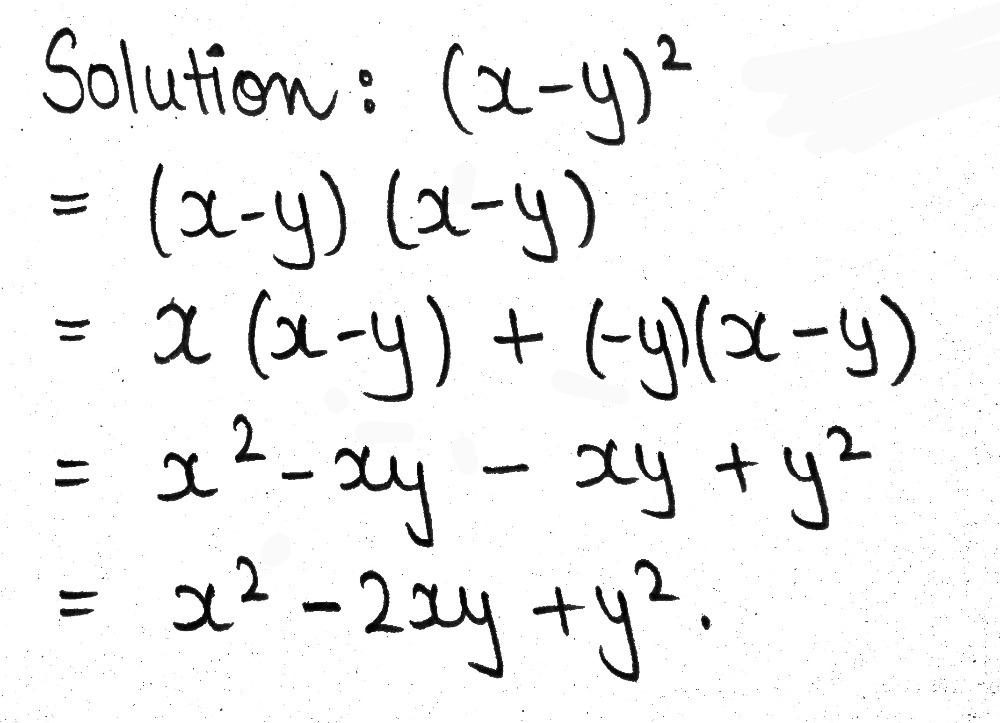 Solution: (x-y)²
= (x-y) (x-y)
= x (x-y) + (-y)(x-y)
= x² - xy - xy + y²
= x² - 2xy + y².